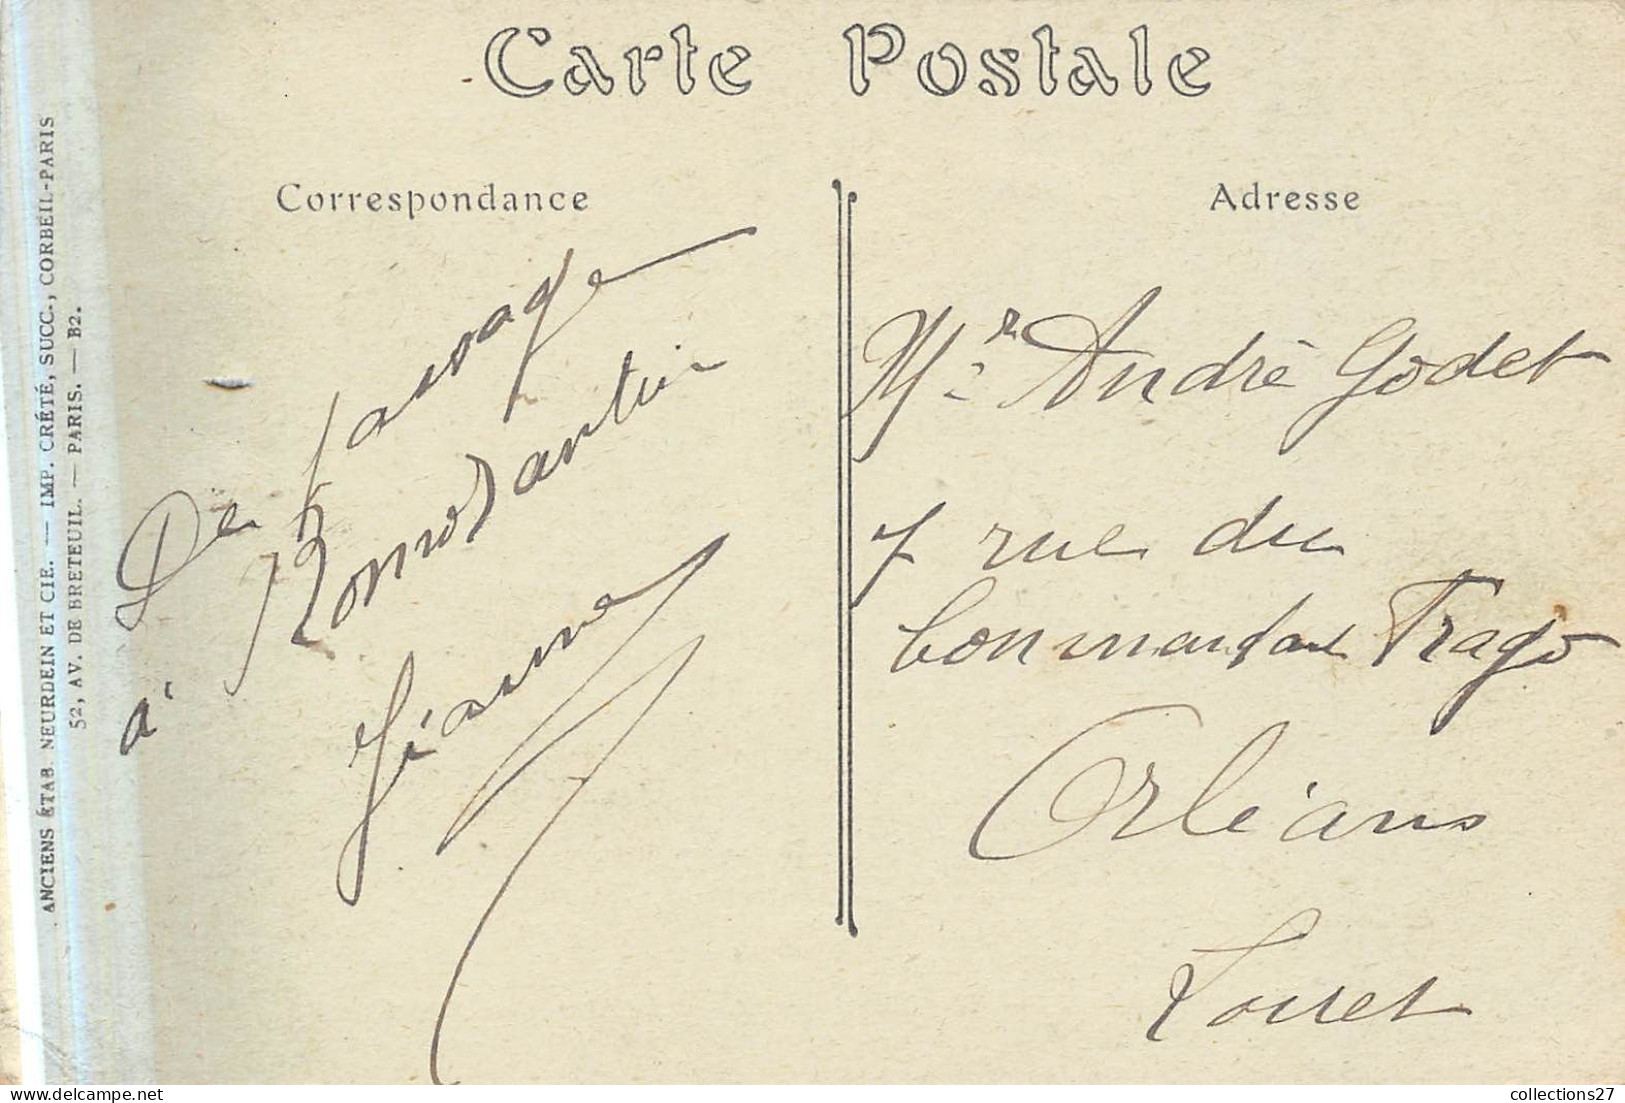 Carte Postale
Correspondance
De passage
à Romorantin
Jeanne
Adresse
Mr André Godet
7 rue du
Commandant Arago
Orléans
Loiret
ANCIENS ÉTAB. NEURDEIN ET CIE. — IMP. CRÉTÉ, SUCC., CORBEIL-PARIS
52, AV. DE BRETEUIL. — PARIS. — B2.
collections27